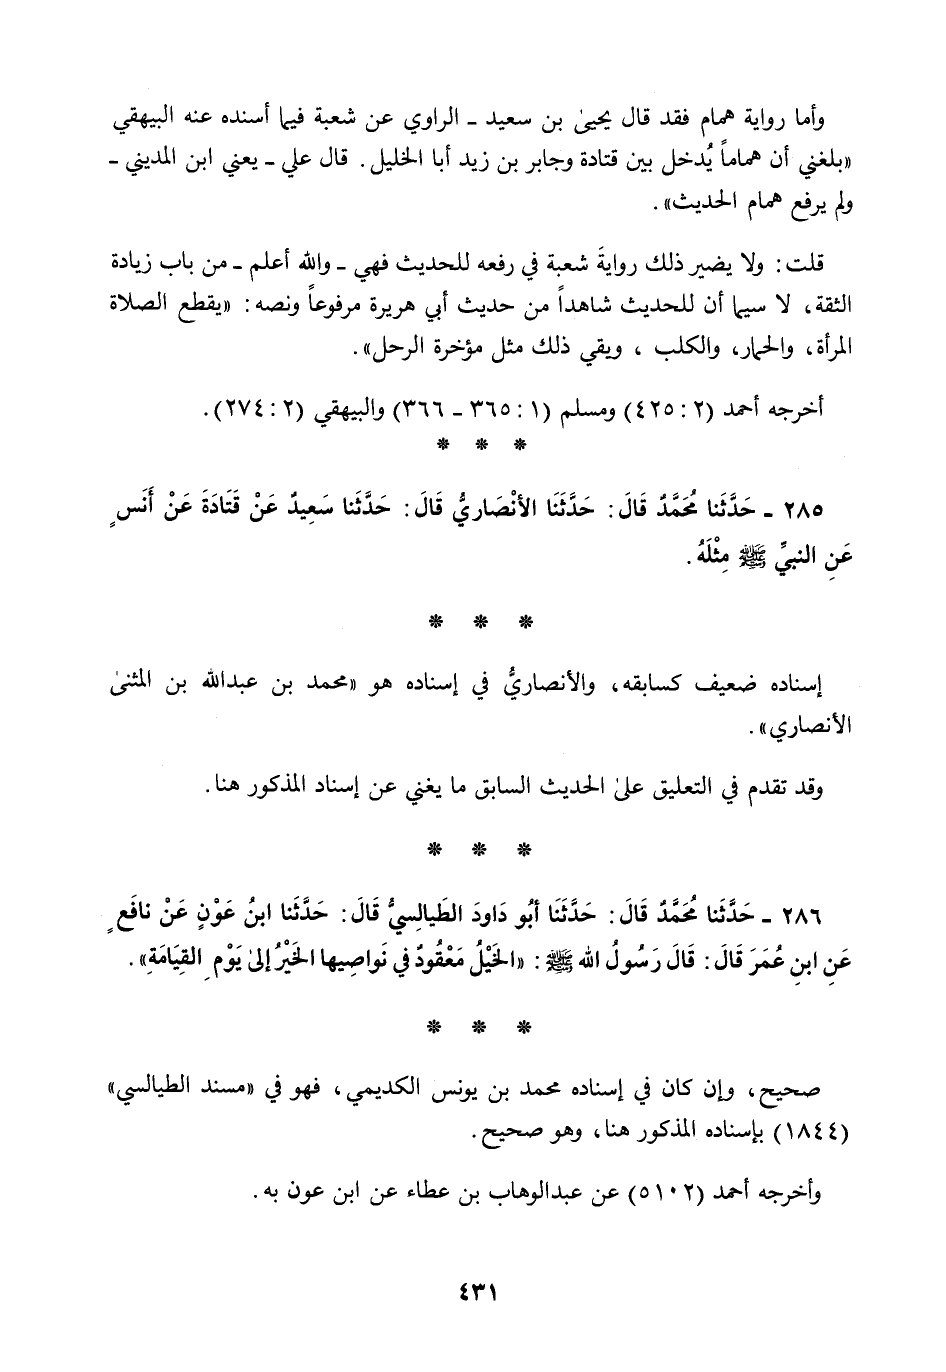 وأما رواية همام فقد قال يحيىٰ بن سعيد ـ الراوي عن شعبة فيما أسنده عنه البيهقي
«بلغني أن هماماً يُدخل بين قتادة وجابر بن زيد أبا الخليل. قال علي ـ يعني ابن المديني ـ
ولم يرفع همام الحديث».
قلت: ولا يضير ذلك روايةَ شعبة في رفعه للحديث فهي ـ والله أعلم ـ من باب زيادة
الثقة، لا سيما أن للحديث شاهداً من حديث أبي هريرة مرفوعاً ونصه: «يقطع الصلاة
المرأة، والحمار، والكلب ، ويقي ذلك مثل مؤخرة الرحل».
أخرجه أحمد (٢: ٤٢٥) ومسلم (١: ٣٦٥ ـ ٣٦٦) والبيهقي (٢: ٢٧٤).
* * *
٢٨٥ ـ حَدَّثَنا مُحَمَّدٌ قَالَ: حَدَّثَنَا الأنْصَاريُّ قَالَ: حَدَّثَنا سَعِيدٌ عَنْ قَتَادَةَ عَنْ أنَسٍ
عَنِ النبيِّ ﷺ مِثْلَهُ.
* * *
إسناده ضعيف كسابقه، والأنصاريُّ في إسناده هو «محمد بن عبدالله بن المثنىٰ
الأنصاري».
وقد تقدم في التعليق علىٰ الحديث السابق ما يغني عن إسناد المذكور هنا.
* * *
٢٨٦ ـ حَدَّثَنا مُحَمَّدٌ قَالَ: حَدَّثَنَا أبُو دَاودَ الطَيالِسيُّ قَالَ: حَدَّثَنا ابنُ عَوْنٍ عَنْ نافَعٍ
عَنِ ابنِ عُمَرَ قَالَ: قَالَ رَسُولُ الله ﷺ: «الخَيْلُ مَعْقُودٌ في نَواصِيها الخَيْرُ إلىٰ يَوْمِ القِيَامَةِ».
* * *
صحيح، وإن كان في إسناده محمد بن يونس الكديمي، فهو في «مسند الطيالسي»
(١٨٤٤) بإسناده المذكور هنا، وهو صحيح.
وأخرجه أحمد (٥١٠٢) عن عبدالوهاب بن عطاء عن ابن عون به.
٤٣١